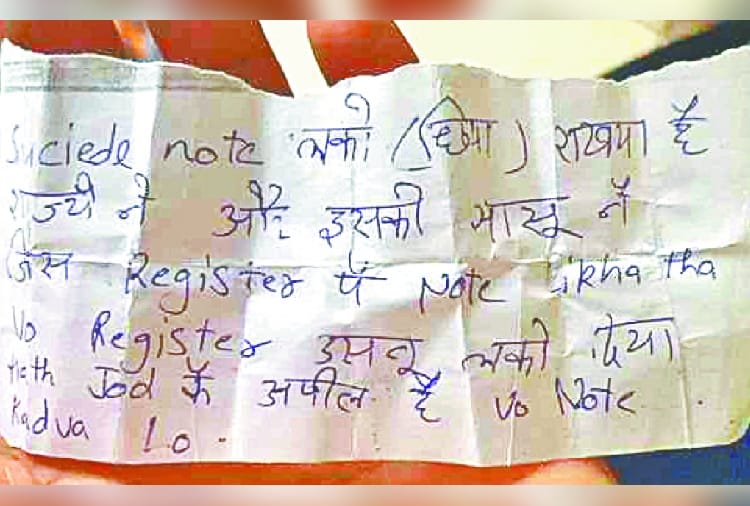 Suciede note लको (छिपा) राखया है
राज्यी ने और इसकी मासू नें
जिस Register पें Note likha tha
Vo Register उसनू लको दिया
Hath Jod कें अपील है Vo Note
Kadva Lo.